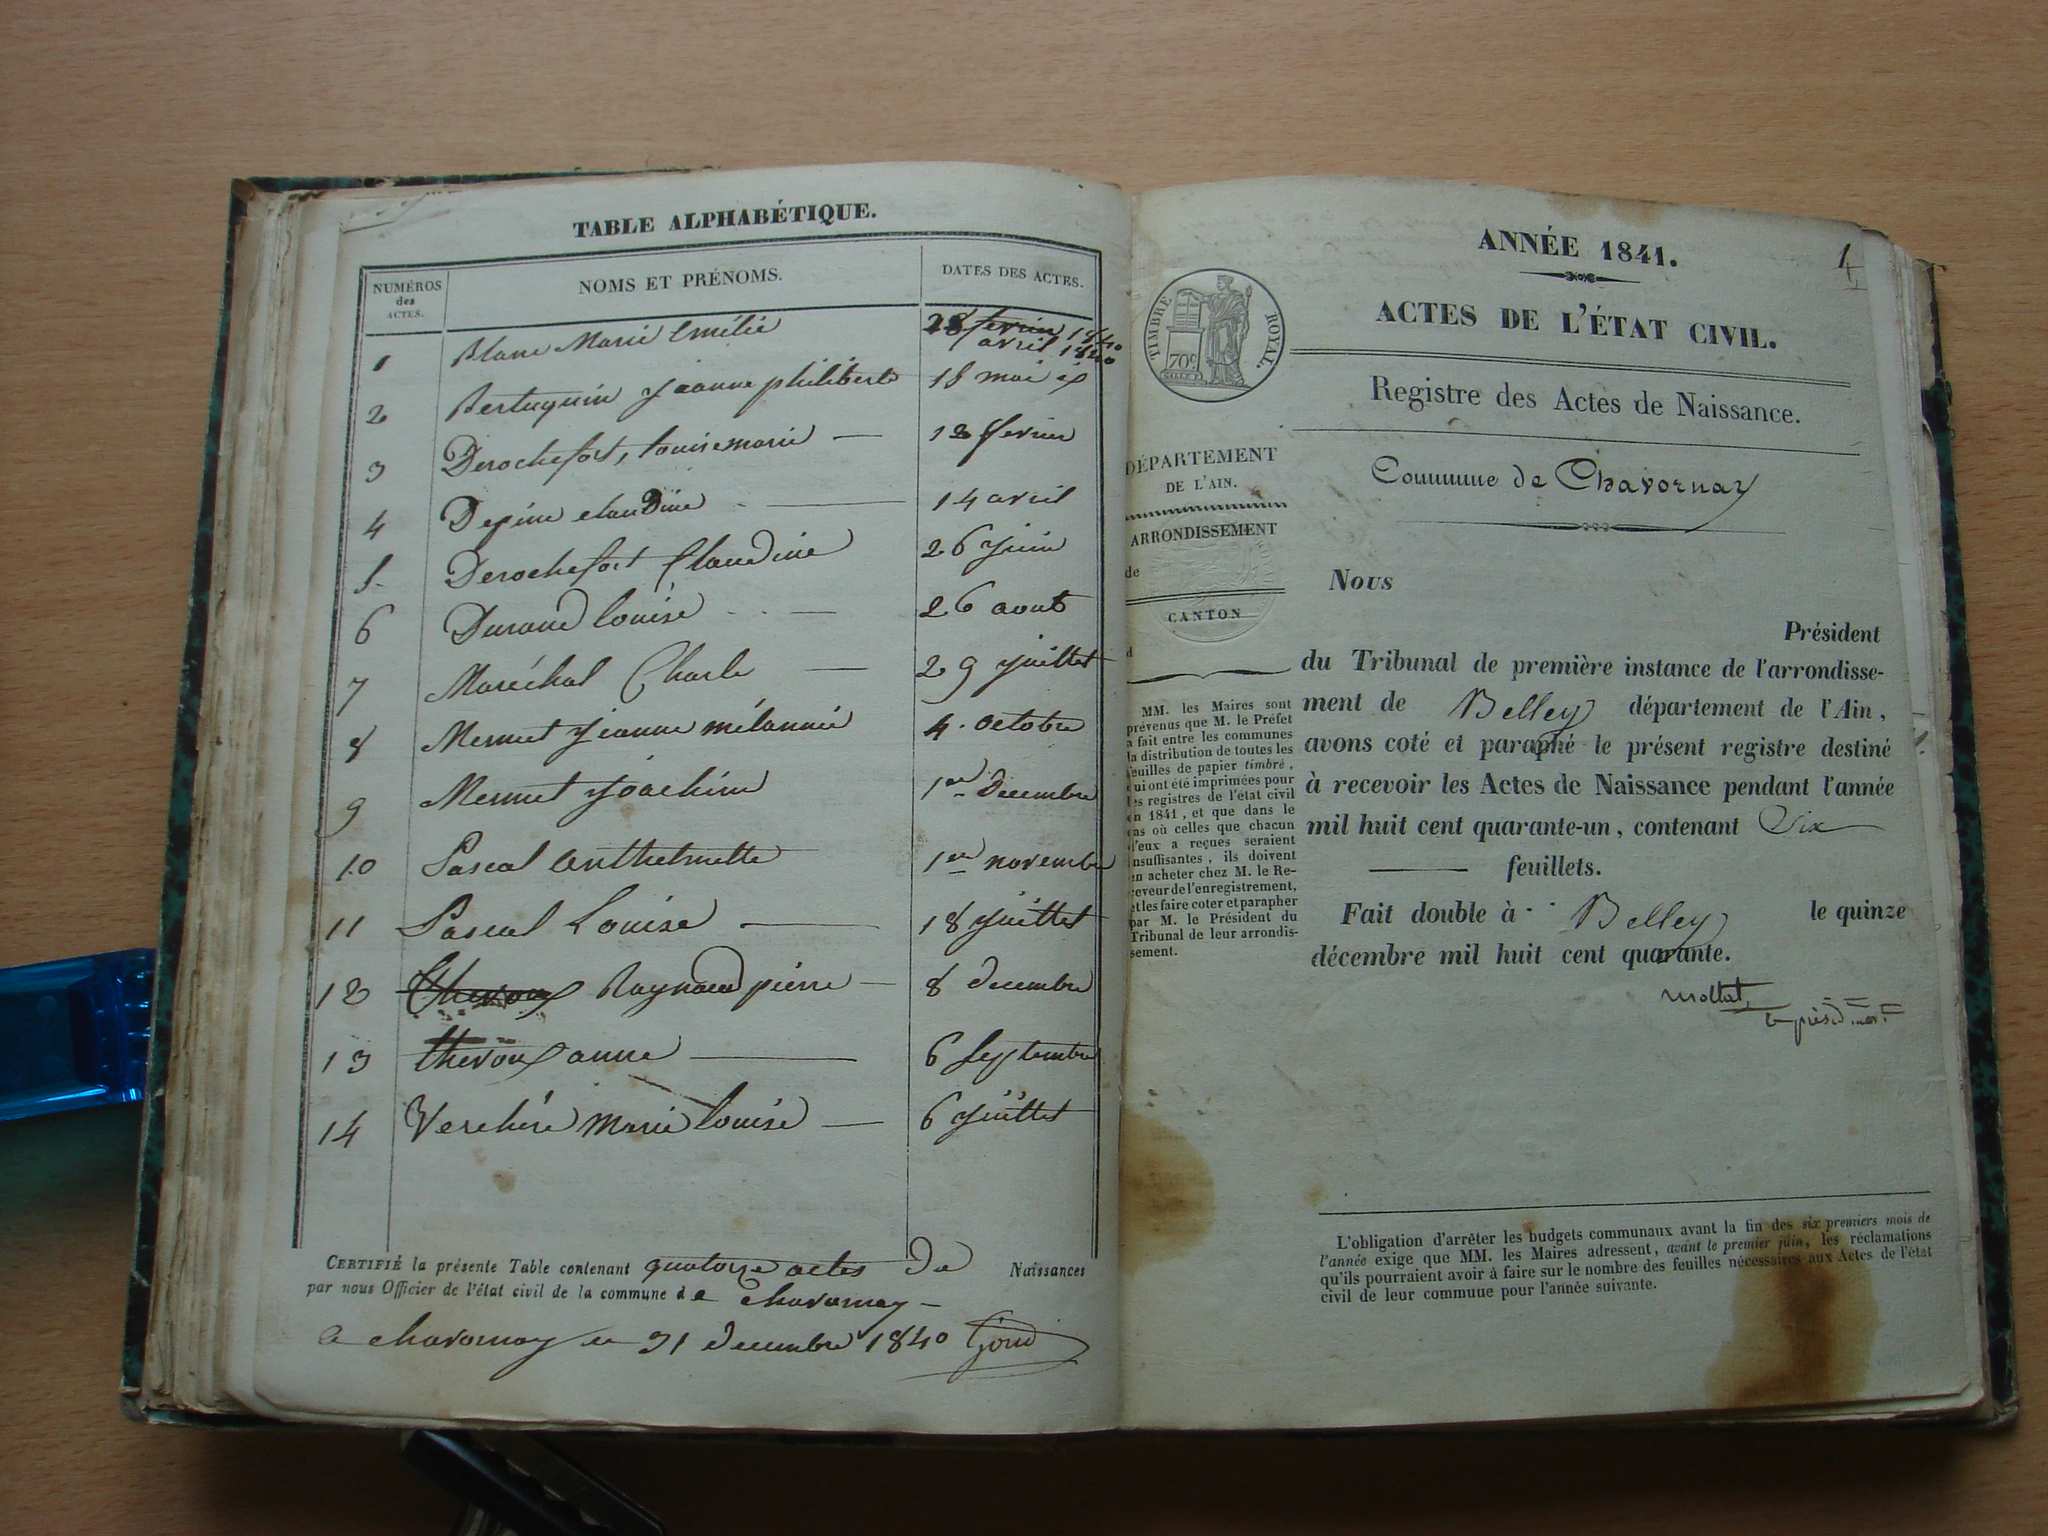 TABLE ALPHABÉTIQUE.
NUMÉROS des ACTES. NOMS ET PRÉNOMS. DATES DES ACTES.
1 Blanc Marie Emélie 28 fevrier 1840
avril 1840
2 Bertuquin Jeanne philiberte 18 mai
3 Derochefort, louise marie — 12 fevrier
4 Depine claudine — 14 avril
5 Derochefort Claudine 26 juin
6 Durand louise — 26 aout
7 Maréchal Charle — 29 juillet
8 Mermet Jeanne mélannie 4. octobre
9 Mermet Joachim 1er Decembre
10 Pascal anthelmette 1er novembre
11 Pascal Louise — 18 juillet
12 Thevoux Raynaud pierre — 8 decembre
13 thevoux anne — 6 septembre
14 Verchère marie louise — 6 juillet
CERTIFIÉ la présente Table contenant quatorze actes De Naissances
par nous Officier de l'état civil de la commune de chavornay —
a chavornay le 31 decembre 1840
1
ANNÉE 1841.
ACTES DE L'ÉTAT CIVIL.
TIMBRE ROYAL.
70c
Registre des Actes de Naissance.
Commune de Chavornay
DÉPARTEMENT
DE L'AIN.
ARRONDISSEMENT
de
CANTON
d
MM. les Maires sont
prévenus que M. le Préfet
a fait entre les communes
la distribution de toutes les
feuilles de papier timbré,
qui ont été imprimées pour
les registres de l'état civil
en 1841, et que dans le
cas où celles que chacun
d'eux a reçues seraient
insuffisantes, ils doivent
en acheter chez M. le Re-
ceveur de l'enregistrement,
et les faire coter et parapher
par M. le Président du
Tribunal de leur arrondis-
sement.
Nous
Président
du Tribunal de première instance de l'arrondisse-
ment de Belley département de l'Ain,
avons coté et paraphé le présent registre destiné
à recevoir les Actes de Naissance pendant l'année
mil huit cent quarante-un, contenant Six
— feuillets.
Fait double à Belley le quinze
décembre mil huit cent quarante.
Mollet
président
L'obligation d'arrêter les budgets communaux avant la fin des six premiers mois de
l'année exige que MM. les Maires adressent, avant le premier juin, les réclamations
qu'ils pourraient avoir à faire sur le nombre des feuilles nécessaires aux Actes de l'état
civil de leur commune pour l'année suivante.